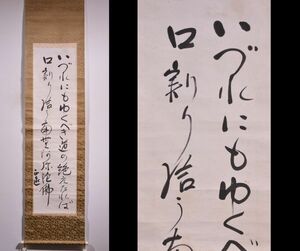 いづれにもゆくべき道の絶えたれば
口割り給う南無阿弥陀佛
いづれにもゆくべ
口割り給う南